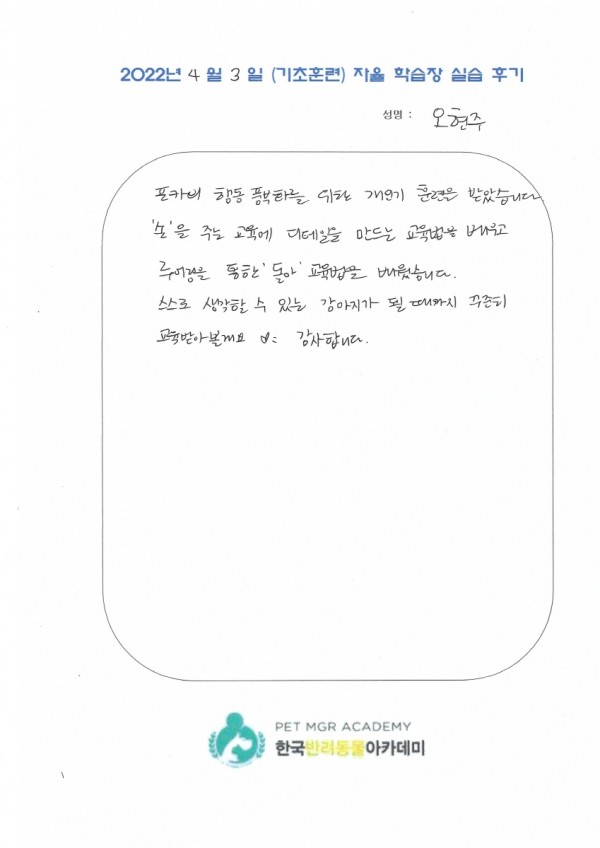 2022년 4월 3일 (기초훈련) 자율 학습장 실습 후기
성명 : 오현주
포카의 행동 풍부화를 위한 개인기 훈련을 받았습니다.
'손'을 주는 교육에 디테일을 만드는 교육법을 배우고
루어링을 통한 '돌아' 교육법을 배웠습니다.
스스로 생각할 수 있는 강아지가 될 때까지 꾸준히
교육받아볼게요 감사합니다.
PET MGR ACADEMY
한국반려동물아카데미